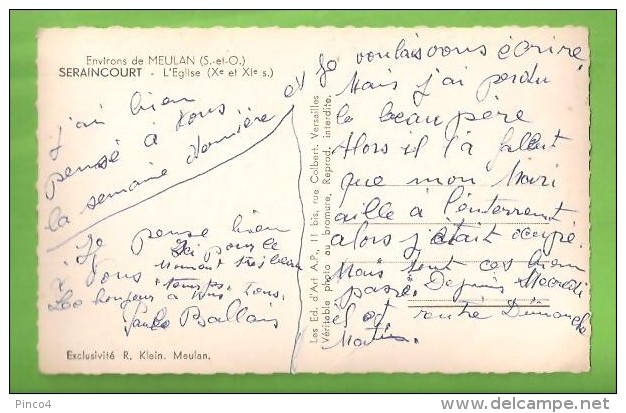 Environs de MEULAN (S.-et-O.)
SERAINCOURT - L'Eglise (Xe et XIe s.)
j'ai bien
pensé à vous
la semaine dernière et
Je voulais vous écrire
Mais j'ai perdu
le beau père
Alors il a fallut
que mon Mari
aille à l'enterrement
alors j'était occupé.
Mais tout ces bien
passé. Depuis Mecredi
il est rentré Dimanche
Matin.
Je pense bien
à Vous
Ici pour le
moment très beau
temps.
bonjour à vous tous.
Ballais
Les Ed. d'Art A.P., 11 bis, rue Colbert. Versailles
Véritable photo au bromure. Reprod. interdite.
Exclusivité R. Klein. Meulan.
Pinco4
www.delcampe.net